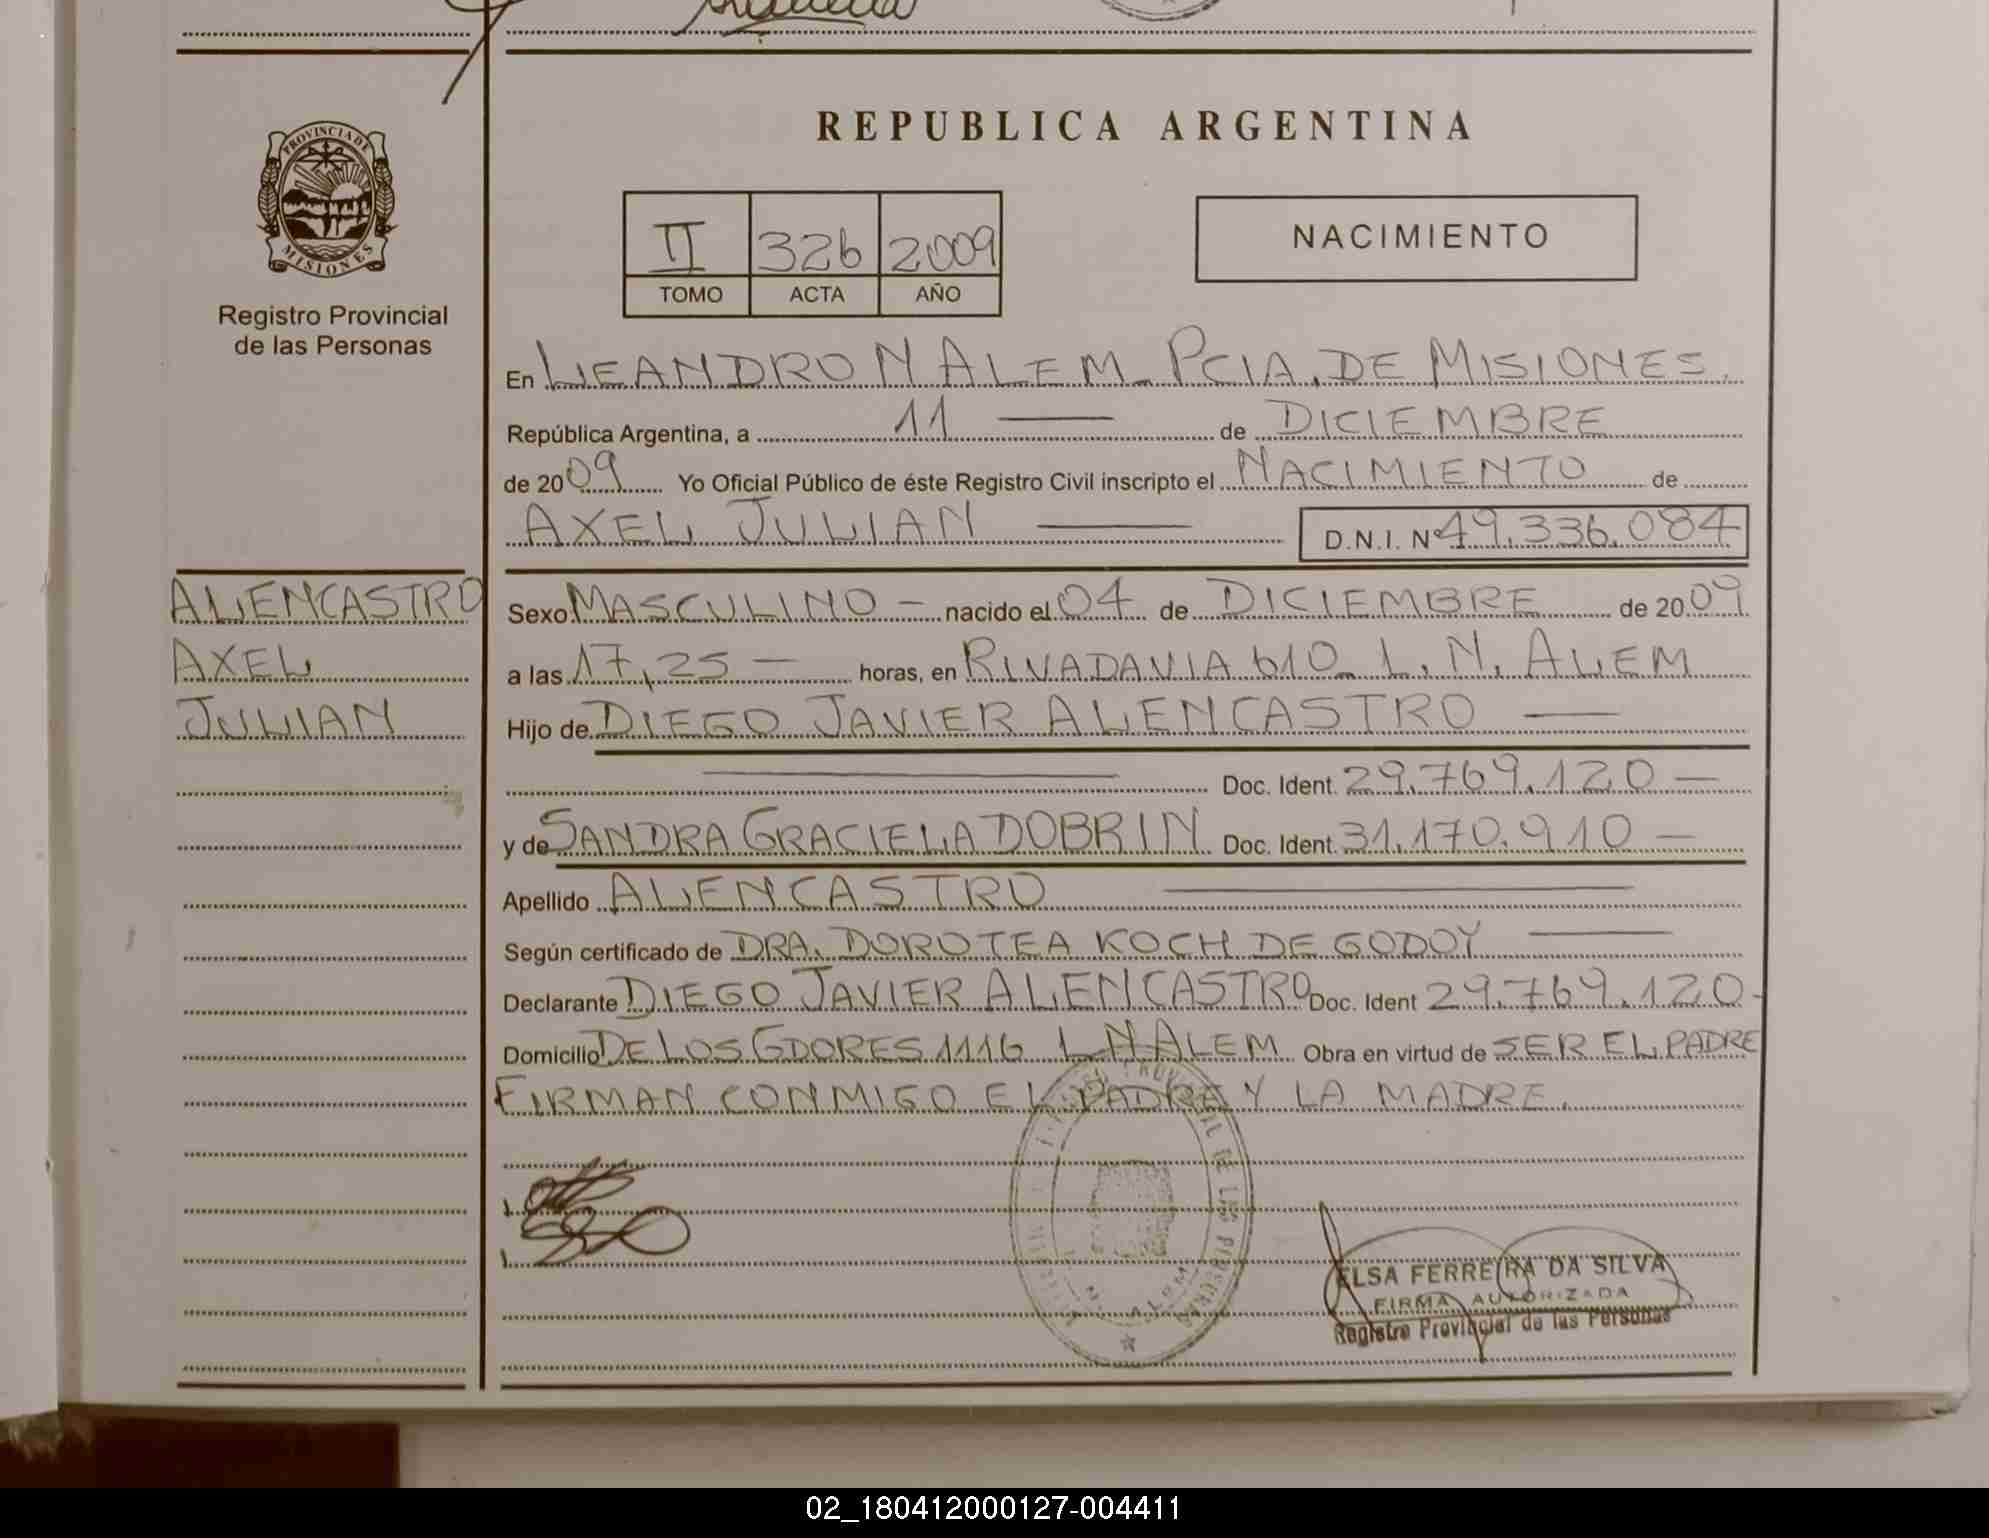 REPUBLICA ARGENTINA
PROVINCIA DE
MISIONES
Registro Provincial
de las Personas
II 326 2009
TOMO ACTA AÑO
NACIMIENTO
En LEANDRO N ALEM - PCIA. DE MISIONES.
República Argentina, a 11 — de DICIEMBRE
de 2009 Yo Oficial Público de éste Registro Civil inscripto el NACIMIENTO de
AXEL JULIAN — D.N.I. Nº 49.336.084
ALENCASTRO
AXEL
JULIAN
Sexo: MASCULINO — nacido el 04 de DICIEMBRE de 2009
a las 17,25 — horas, en RIVADAVIA 610 - L. N. ALEM
Hijo de DIEGO JAVIER ALENCASTRO —
— Doc. Ident. 29.769.120 —
y de SANDRA GRACIELA DOBRIN Doc. Ident. 31.170.910 —
Apellido ALENCASTRO —
Según certificado de DRA. DOROTEA KOCH DE GODOY —
Declarante DIEGO JAVIER ALENCASTRO Doc. Ident 29.769.120 -
Domicilio DE LOS GDORES 1116 L N ALEM Obra en virtud de SER EL PADRE
FIRMAN CONMIGO EL PADRE Y LA MADRE.
DE LAS PERSONAS
L. N. ALEM
ELSA FERREIRA DA SILVA
FIRMA AUTORIZADA
Registro Provincial de las Personas
02_180412000127-004411